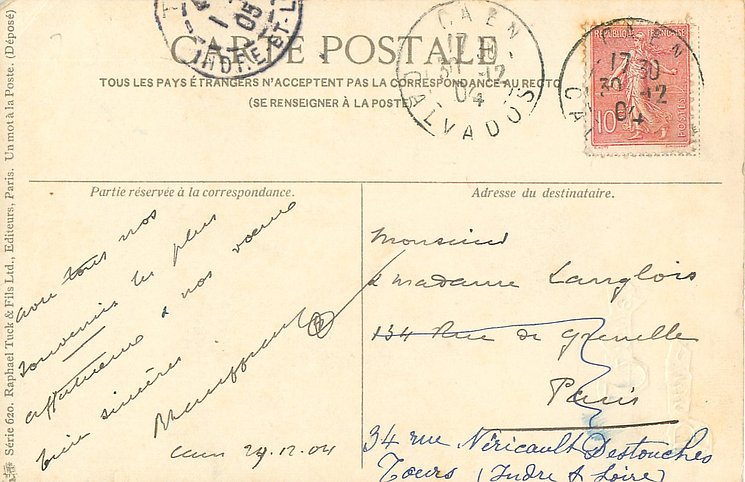 CARTE POSTALE
TOUS LES PAYS ÉTRANGERS N'ACCEPTENT PAS LA CORRESPONDANCE AU RECTO
(SE RENSEIGNER À LA POSTE)
INDRE-ET-L
05
CAEN
17 30
31 -12
04
CALVADOS
REPUBLIQUE FRANÇAISE
10
POSTES
CAEN
17 30
30 -12
04
CAL
Partie réservée à la correspondance.
Adresse du destinataire.
avec tous nos
souvenirs les plus
affectueux & nos voeux
bien sincères
Caen 29.12.04
Monsieur
& madame Langlois
134 Rue de Grenelle
Paris
34 rue Néricault Destouches
Tours (Indre & Loire)
Série 620. Raphael Tuck & Fils Ltd., Editeurs, Paris. Un mot à la Poste. (Déposé)